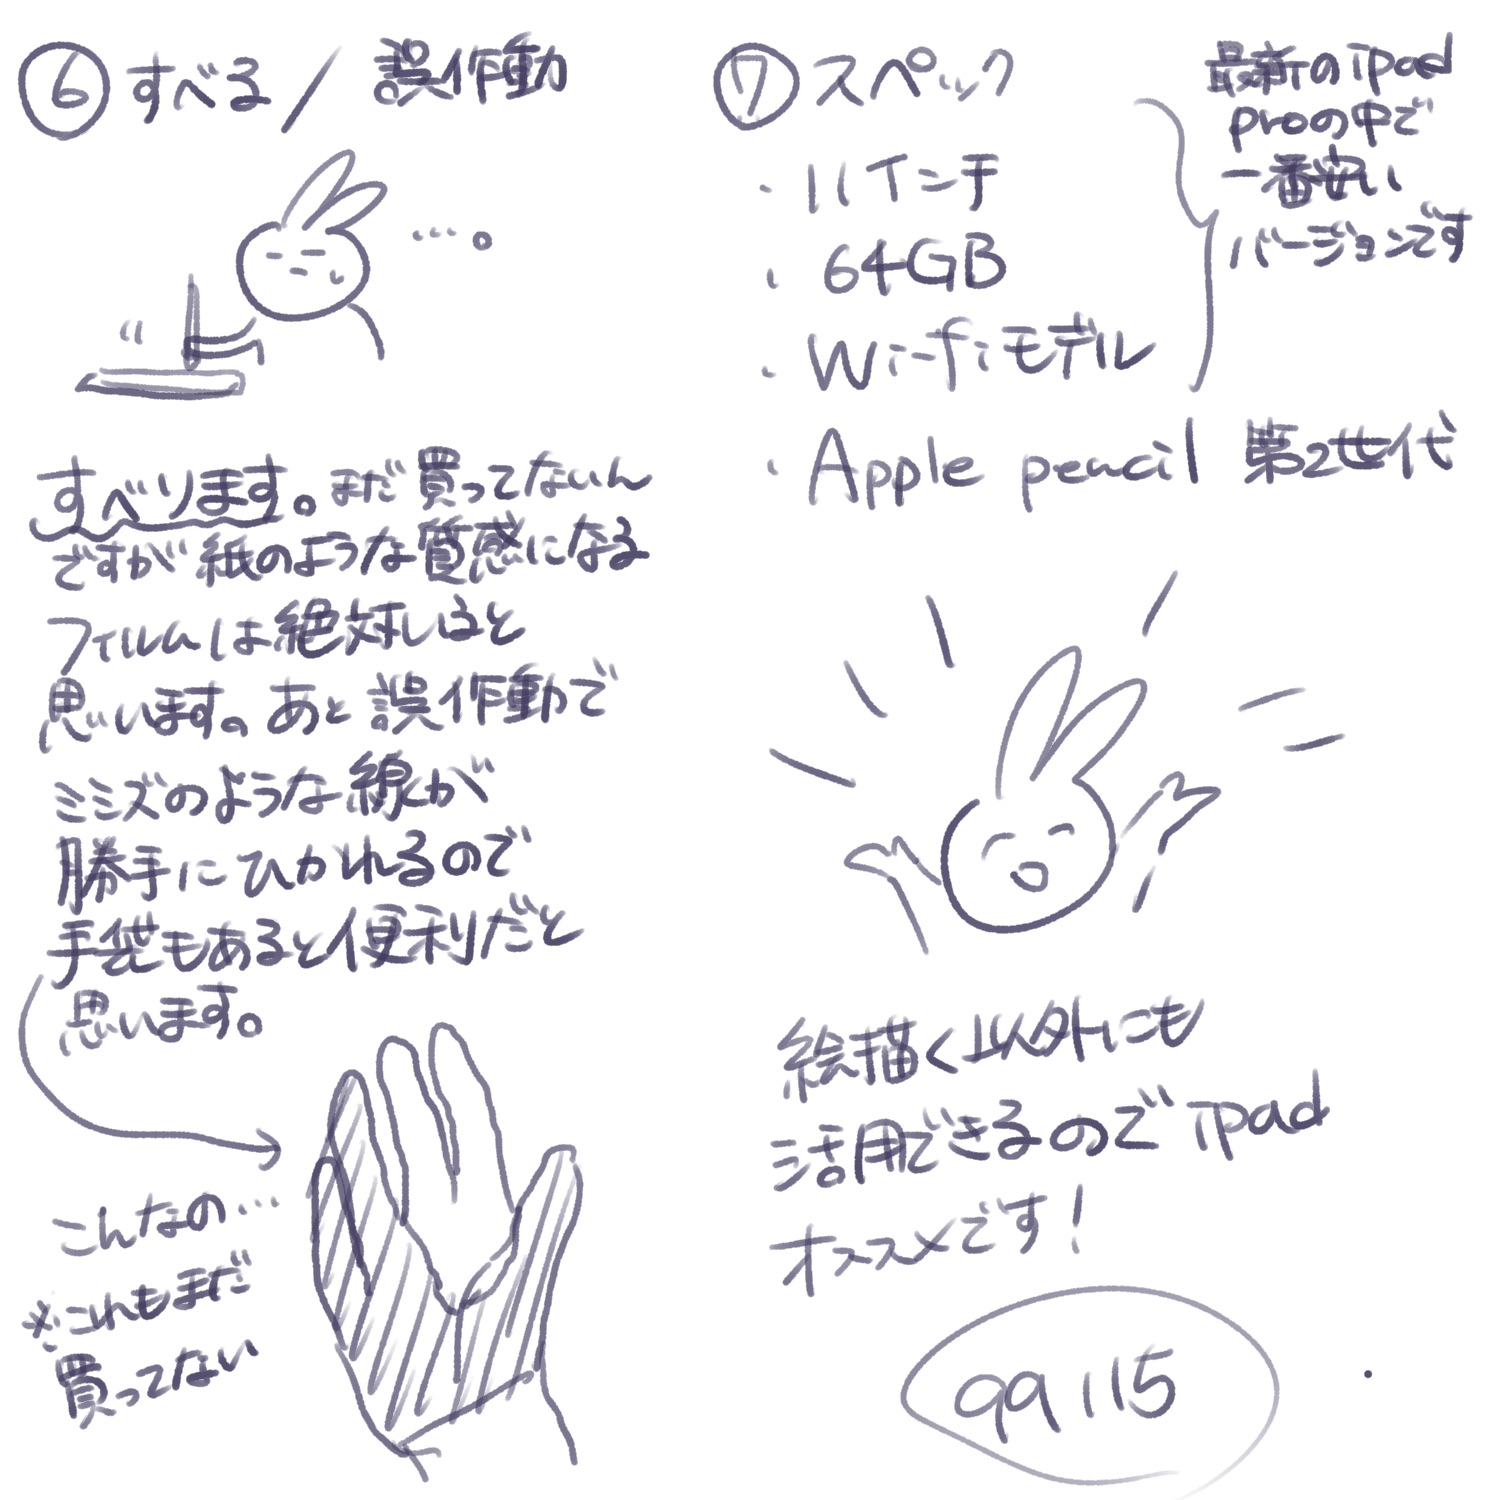 ⑥すべる/誤作動
…。
すべります。まだ買ってないん
ですが紙のような質感になる
フィルムは絶対いると
思います。あと誤作動で
ミミズのような線が
勝手にひかれるので
手袋もあると便利だと
思います。
こんなの…
※これもまだ
買ってない
⑦スペック
・11インチ
・64GB
・Wi-fiモデル
・Apple pencil 第2世代
最新のipad
proの中で
一番安い
バージョンです
絵描く以外にも
活用できるのでipad
オススメです!
99115